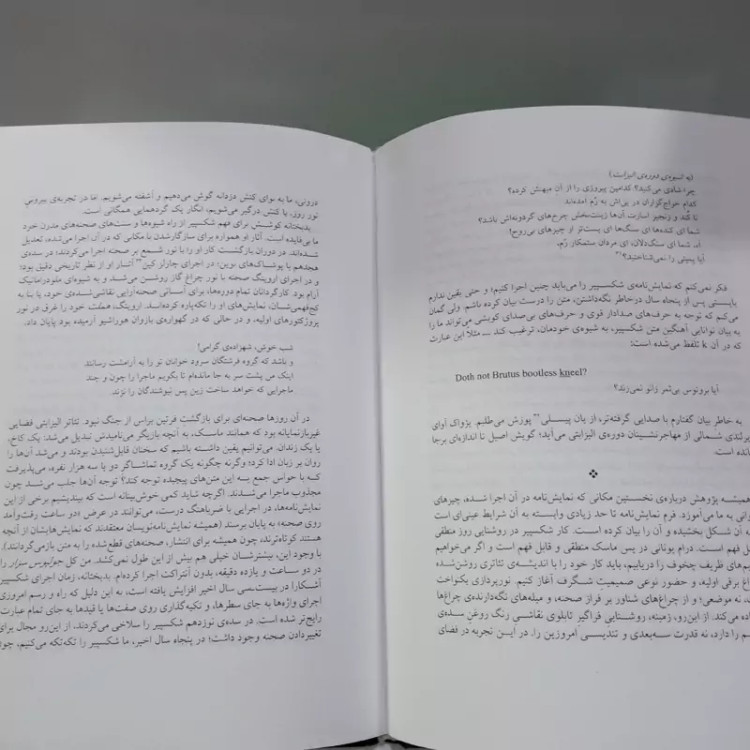 (به شیوه‌ی دوره‌ی الیزابت)
چرا شادی می‌کنید؟ کدامین پیروزی را از آن میهنش کرده؟
کدام خراج‌گزاران در پی‌اش به رُم آمده‌اند
تا کُند و زنجیر اسارت آن‌ها زینت‌بخش چرخ‌های گردونه‌اش باشد؟
شما ای کنده‌ها ای سنگ‌ها ای پست‌تر از چیزهای بی‌روح!
آه، شما ای سنگ‌دلان، ای مردان ستمکار رُم،
آیا پمپی را نمی‌شناختید؟
فکر نمی‌کنم که نمایش‌نامه‌ی شکسپیر را می‌باید چنین اجرا کنیم؛ و حتی یقین ندارم
بایستی پس از پنجاه سال درخاطر نگه‌داشتن، متن را درست بیان کرده باشم. ولی گمان
می‌کنم که توجه به حرف‌های صدادار قوی و حرف‌های بی‌صدای کوبشی می‌تواند ما را
به بیان توانایی آهنگین متن شکسپیر، به شیوه‌ی خودمان، ترغیب کند ــ مثلاً این عبارت
که در آن k تلفظ می‌شده است:
Doth not Brutus bootless kneel?
آیا بروتوس بی‌ثمر زانو نمی‌زند؟
به خاطر بیان گفتارم با صدایی گرفته‌تر، از یان پیسلی پوزش می‌طلبم. پژواک آوای
یرلندی شمالی از مهاجرنشینان دوره‌ی الیزابتی می‌آید؛ گویش اصیل تا اندازه‌ای برجا
مانده است.
همیشه پژوهش درباره‌ی نخستین مکانی که نمایش‌نامه در آن اجرا شده، چیزهای
رانی به ما می‌آموزد. فرم نمایش‌نامه تا حد زیادی وابسته به آن شرایط عینی‌ای است
که به آن شکل بخشیده و آن را بیان کرده است. کار شکسپیر در روشنایی روز منطقی
قابل فهم است. درام یونانی در پس ماسک منطقی و قابل فهم است و اگر می‌خواهیم
یم‌های ظریف چخوف را دریابیم، باید کار خود را با اندیشه‌ی تئاتری روشن‌شده
راغ برقی اولیه، و حضور نوعی صمیمیت شگرف آغاز کنیم. نورپردازی یکنواخت
، نه موضعی؛ و از چراغ‌های شناور بر فراز صحنه، و میله‌های نگه‌دارنده‌ی چراغ‌ها
ده می‌کند. از این‌رو، زمینه، روشنایی فراگیر تابلوی نقاشی رنگ روغن سده‌ی
م را دارد، نه قدرت سه‌بعدی و تندیسی امروزین را. در این تجربه در فضای
درونی، ما به نوای کنش دزدانه گوش می‌دهیم و آشفته می‌شویم. اما در تجربه‌ی بیرونیِ
نور روز، با کنش درگیر می‌شویم، انگار یک گردهمایی همگانی است.
بدبختانه کوشش برای فهم شکسپیر از راه شیوه‌ها و سنت‌های صحنه‌های مدرن خود
ما بی‌فایده است. آثار او همواره برای سازگارشدن با مکانی که در آن اجرا می‌شده، تعدیل
شده‌اند. در دوران بازگشت کار او را با نور شمع بر صحنه اجرا می‌کردند؛ در سده‌ی
هجدهم با پوشاک‌های نوین؛ در اجرای چارلز کین آثار او از نظر تاریخی دقیق بود؛
و در اجرای اروینگ صحنه با نور چراغ گاز روشن می‌شد و به شیوه‌ی ملودراماتیک
آرام بود. کارگردانان تمام دوره‌ها، برای آسانی صحنه‌آرایی نقاشی‌شده‌ی خود، یا بنا به
کج‌فهمی‌شان، نمایش‌های او را تکه‌پاره کرده‌اند. اروینگ، هملت خود را غرق در نور
پروژکتورهای اولیه، و در حالی که در گهواره‌ی بازوان هوراشیو آرمیده بود، پایان داد.
شب خوش، شهزاده‌ی گرامی!
و باشد که گروه فرشتگان سرود خوانان تو را به آرامشت رسانند
اینک من پشت سر به جا مانده‌ام تا بگویم ماجرا را چون و چند
ماجرایی که خواهد ساخت زین پس نیوشندگان را نژند.
در آن روزها صحنه‌ای برای بازگشت فرتین براس از جنگ نبود. تئاتر الیزابتی فضایی
غیربازنمایانه بود که همانند ماسک، به آنچه بازیگر می‌نامیدش تبدیل می‌شد: یک کاخ،
یا یک زندان. می‌توانیم یقین داشته باشیم که سخنان قابل‌شنیدن بودند و می‌شد آن‌ها را
روان بر زبان ادا کرد؛ وگرنه چگونه یک گروه تماشاگر دو یا سه هزار نفره، می‌پذیرفت
که با حواس جمع به این متن‌های پیچیده توجه کند؟ توجه آن‌ها جلب می‌شد چون
مجذوب ماجرا می‌شدند. اگرچه شاید کمی خوش‌بینانه است که بیندیشیم برخی از این
نمایش‌نامه‌ها، در اجرایی با ضرباهنگ درست، می‌توانند در عرض «دو ساعت رفت‌وآمد
روی صحنه» به پایان برسند (همیشه نمایش‌نامه‌نویسان معتقدند که نمایش‌هایشان از آنچه
هستند کوتاه‌ترند، چون همیشه برای انتشار، صحنه‌های قطع‌شده را به متن بازمی‌گردانند).
با وجود این، بیشترشان خیلی هم بیش از این طول نمی‌کشد. من کل جولیوس سزار را
در دو ساعت و یازده دقیقه، بدون آنتراکت اجرا کرده‌ام. بدبختانه، زمان اجرای شکسپیر
آشکارا در بیست‌سی سال اخیر افزایش یافته است، به این دلیل که راه و رسم امروزی
اجرای واژه‌ها به جای سطرها، و تکیه‌گذاری روی صفت‌ها یا قیدها به جای تمام عبارت
رایج‌تر شده است. در سده‌ی نوزدهم شکسپیر را سلاخی می‌کردند، از این‌رو مجال برای
تغییردادن صحنه وجود داشت؛ در پنجاه سال اخیر، ما شکسپیر را تکه‌تکه می‌کنیم، چون